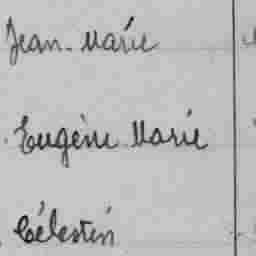 Jean-Marie
Eugène Marie
Célestin